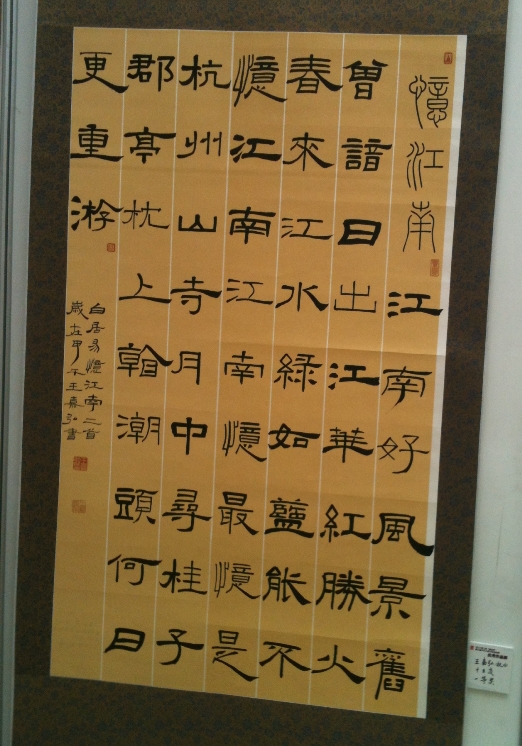 憶江南
江南好風景舊
曾諳日出江華紅勝火
春來江水綠如藍能不
憶江南江南憶最憶是
杭州山寺月中尋桂子
郡亭枕上看潮頭何日
更重游
白居易憶江南二首
歲在甲午王弘書